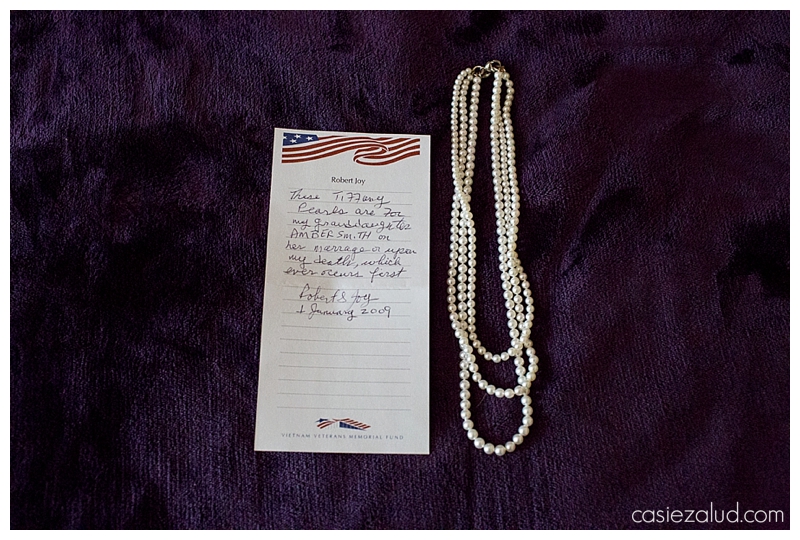 Robert Joy
These Tiffany
Pearls are For
my granddaughter
AMBER SMITH on
her marriage or upon
my death, which
ever occurs first
Robert S Joy
1 January 2009
VIETNAM VETERANS MEMORIAL FUND
casiezalud.com